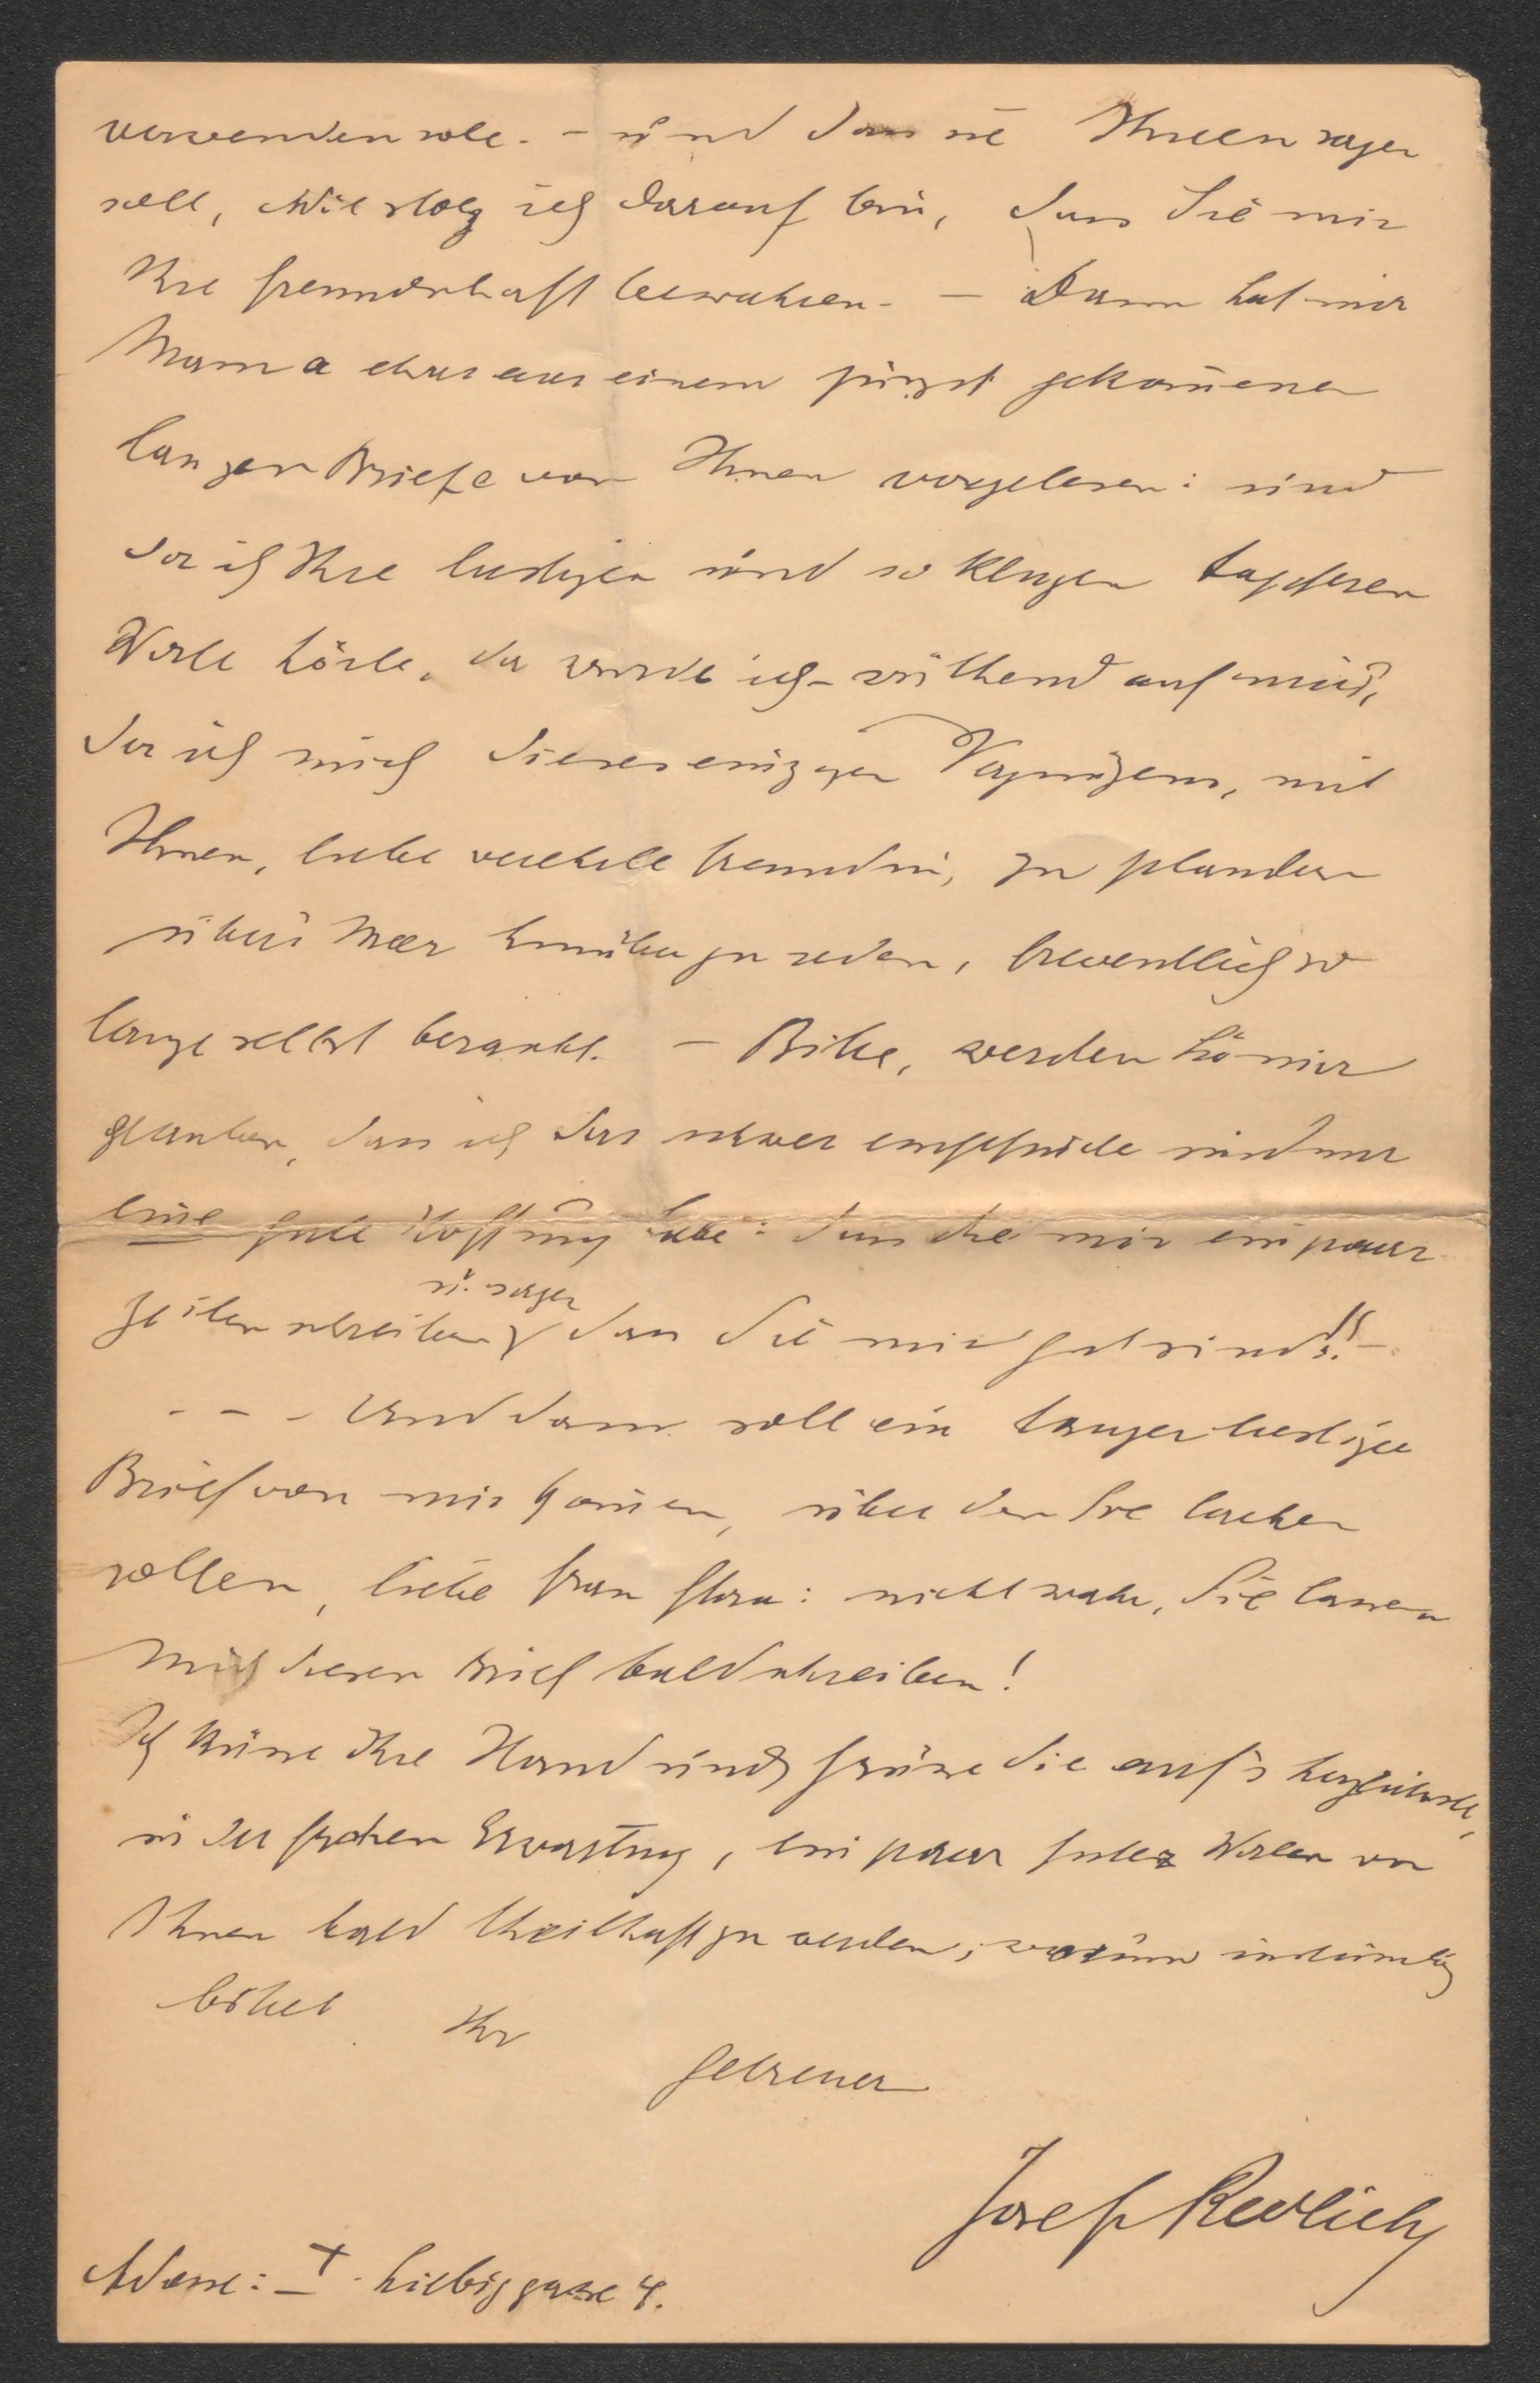 verwenden solle. – und dass sie Ihnen sagen
soll, wie stolz ich darauf bin, dass Sie mir
Ihre Freundschaft bewahren. – Dann hat mir
Mama etwas aus einem jüngst gekom̄enen
langen Briefe von Ihnen vorgelesen: und
da ich Ihre lustigen und so klugen tapferen
Worte hörte, da wurde ich wüthend auf mich,
der ich mich dieses einzigen Vergnügens, mit
Ihnen, liebe verehrte Freundin, zu plaudern
über's Meer hinüber zu reden, freventlich so
lange selbst beraubt. – Bitte, werden Sie mir
glauben, dass ich das schwer empfinde und nur
eine gute Hoffnung habe: dass Sie mir ein paar
Zeilen schreiben u. sagen dass Sie mir gut sind!! –
– – – Und dann soll ein langer lustiger
Brief von mir kom̄en, über den Sie lachen
sollen, liebe Frau Flora: nicht wahr, Sie lassen
mich diesen Brief bald schreiben!
Ich küsse Ihre Hand und grüsse Sie auf's herzlichste,
in der frohen Erwartung, ein paar guter Worte von
Ihnen bald theilhaft zu werden, worum inständig
bittet Ihr
getreuer
Josef Redlich
Adresse: I. Liebiggasse 4.